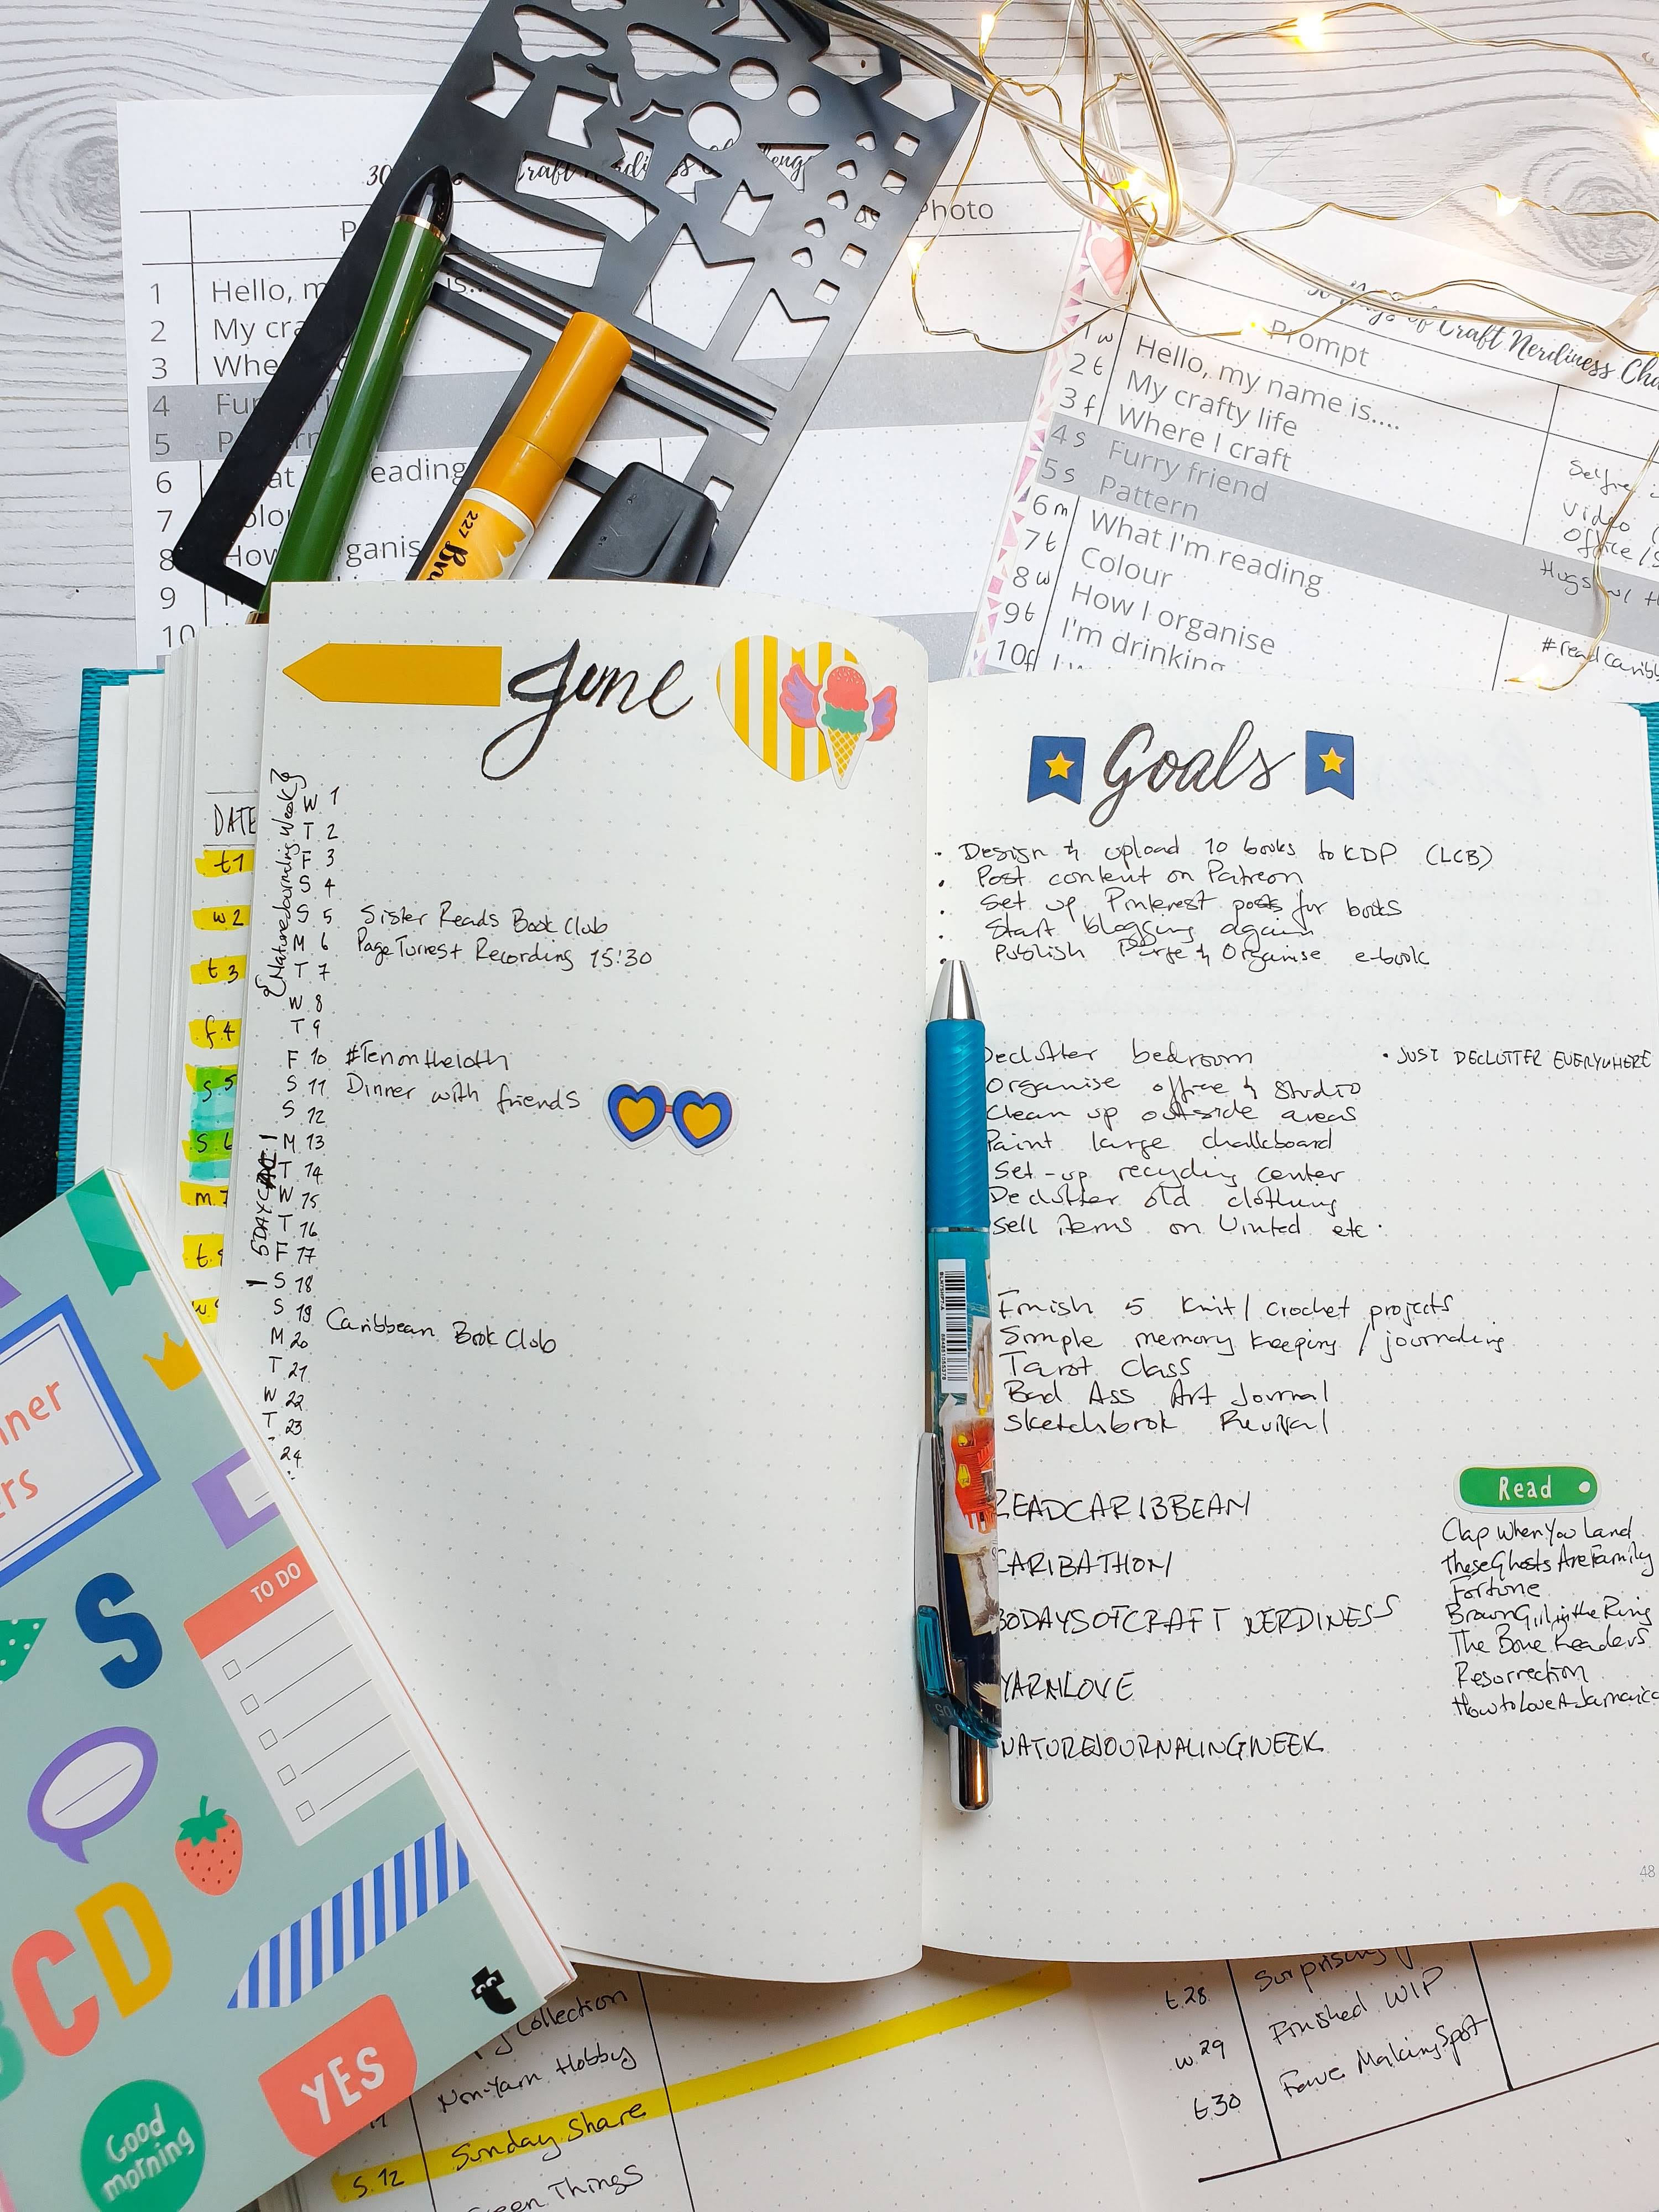 30
Craft
Photo
1
Hello, m
is...
2
My cra
3
Whe
4
Fur
5
P
6
eading
7
olou
8
How
ganis
9
10
30 Days of Craft Nerdiness Cha
Prompt
1 w Hello, my name is....
2 t My crafty life
3 f Where I craft
4 s Furry friend
5 s Pattern
6 m What I'm reading
7 t Colour
8 w How I organise
9 t I'm drinking
10 f
Selfie
Video
Office / S
Hugs w/
#readcaribb
227
June
{NatureJournaling Week}
W 1
T 2
F 3
S 4
S 5 Sister Reads Book Club
M 6 PageTurners+ Recording 15:30
T 7
W 8
T 9
F 10 #Tenonthe10th
S 11 Dinner with friends
S 12
M 13
T 14
W 15
T 16
F 17
S 18
S 19 Caribbean Book Club
M 20
T 21
W 22
T 23
24
5DAY
DATE
t1
w2
t 3
f 4
s 5
s 6
m 7
t.
w
Goals
· Design & upload 10 books to KDP (LCB)
· Post content on Patreon
· Set up Pinterest posts for books
· Start blogging again
· Publish Purge & Organise e-book
Declutter bedroom
· JUST DECLUTTER EVERYWHERE
Organise office & studio
Clean up outside areas
Paint large chalkboard
Set-up recycling center
Declutter old clothing
Sell items on Vinted etc.
Finish 5 knit / crochet projects
Simple memory keeping / journaling
Tarot Class
Bad Ass Art Journal
Sketchbook Revival
READCARIBBEAN
CARIBATHON
30DAYSOFCRAFT NERDINESS
YARNLOVE
NATUREJOURNALINGWEEK
Read
Clap When You Land
These Ghosts Are Family
Fortune
Brown Girl in the Ring
The Bone Readers
Resurrection
How to Love A Jamaica
48
nner
ers
S
TO DO
CD
YES
Good
morning
t
Collection
Non-Yarn Hobby
S. 12 Sunday Share
Green Things
t.28 Surprising
w.29 Finished WIP
t.30 Fave Making Spot